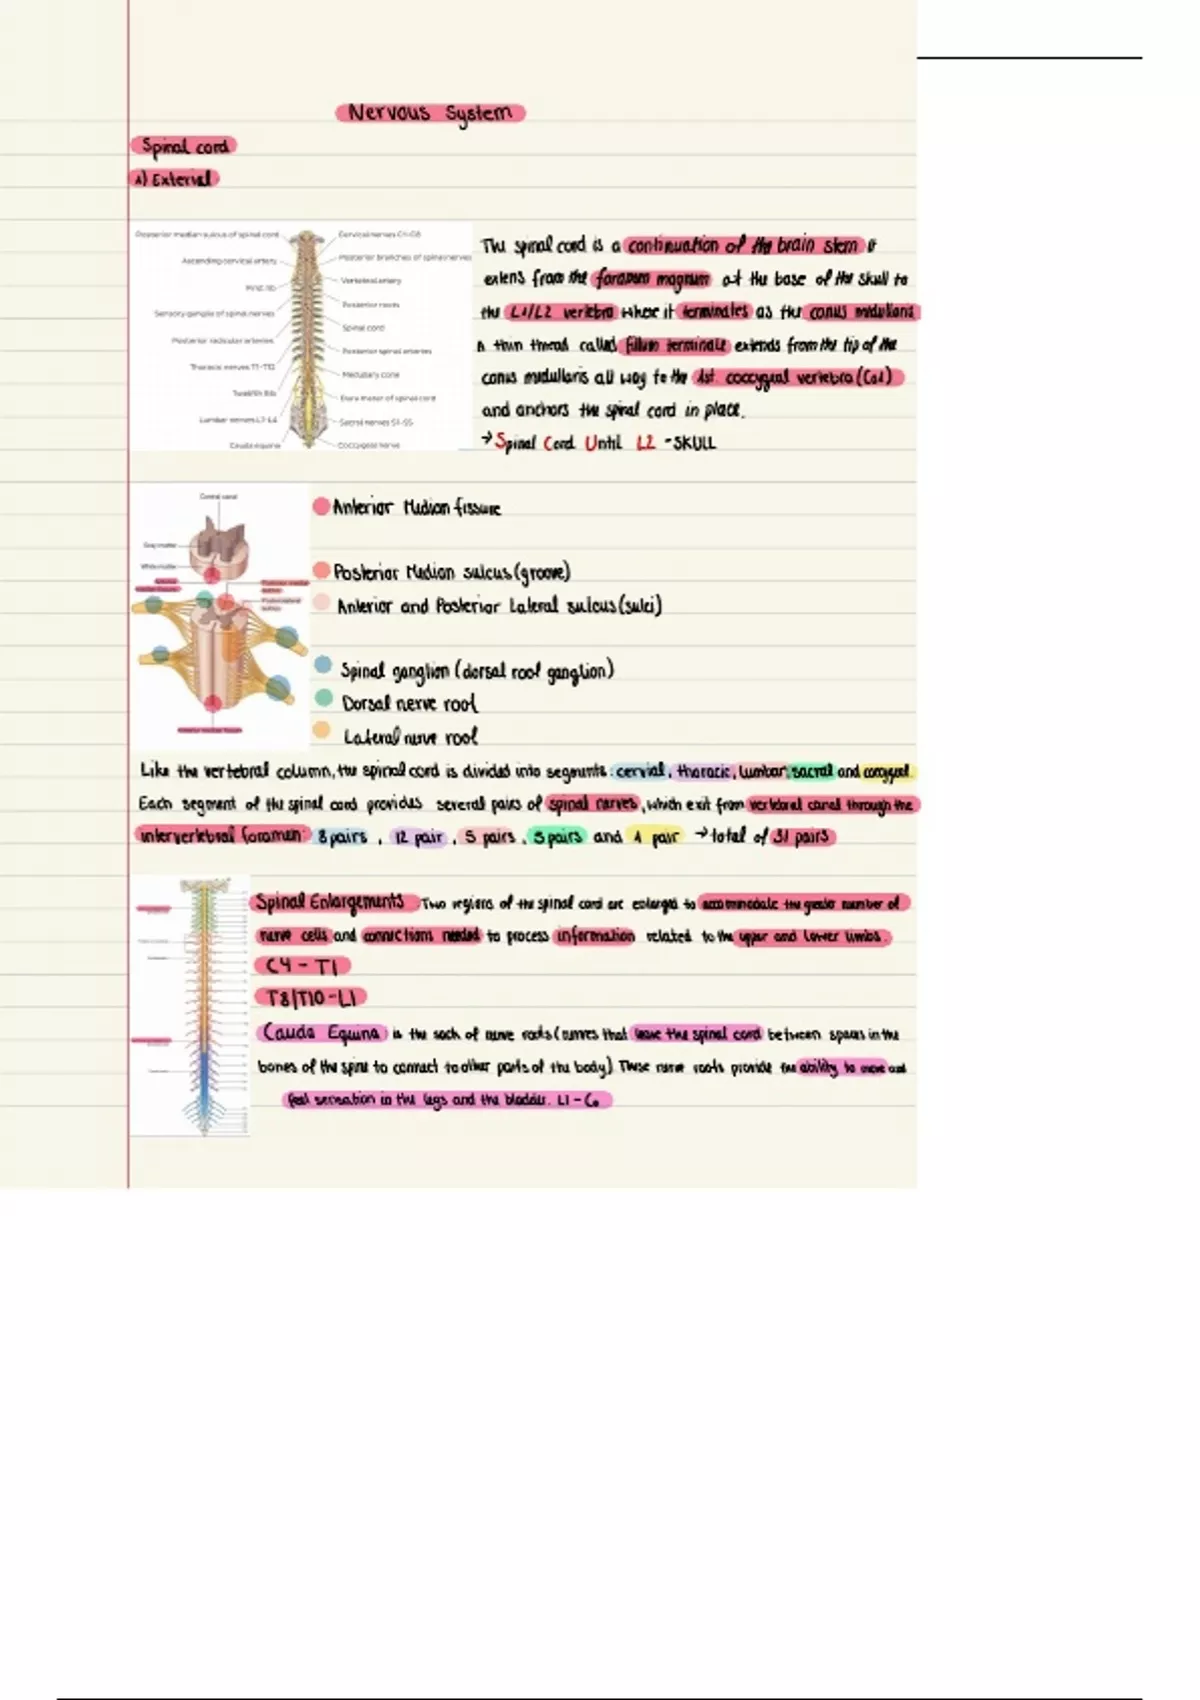 Nervous System
Spinal cord
1) External
Posterior median sulcus of spinal cord
Cervical nerves C1-C8
Ascending cervical artery
Posterior branches of spinal nerves
Vertebral artery
Posterior roots
Sensory ganglia of spinal nerves
Spinal cord
Posterior radicular arteries
Posterior spinal arteries
Thoracic nerves T1-T12
Medullary cone
Twelfth Rib
Dura mater of spinal cord
Lumbar nerves L1-L4
Sacral nerves S1-S5
Cauda equina
Coccygeal nerve
The spinal cord is a continuation of the brain stem &
extens from the foramen magnum at the base of the skull to
the L1/L2 vertebra where it terminates as the conus medullaris
A thin thread called fillum terminale extends from the tip of the
conus medullaris all way to the 1st. coccygeal vertebra (Co1)
and anchors the spinal cord in place.
→ Spinal Cord Until L2 - SKULL
Central canal
Gray matter
White matter
Anterior Median fissure
Posterior Median sulcus (groove)
Anterior and Posterior Lateral sulcus (sulci)
Spinal ganglion (dorsal root ganglion)
Dorsal nerve root
Lateral nerve root
Like the vertebral column, the spinal cord is divided into segments: cervial, thoracic, lumbar, sacral and coccygeal.
Each segment of the spinal cord provides several pairs of spinal nerves, which exit from vertebral canal through the
intervertebral foramen: 8 pairs, 12 pair, 5 pairs, 5 pairs and 1 pair → total of 31 pairs
Spinal Enlargements: Two regions of the spinal cord are enlarged to accommodate the greater number of
nerve cells and connections needed to process information related to the upper and lower limbs.
C4 - T1
T8/T10-L1
Cauda Equina: is the sack of nerve roots (nerves that leave the spinal cord between spaces in the
bones of the spine to connect to other parts of the body). These nerve roots provide the ability to move and
feel sensation in the legs and the bladder. L1 - Co